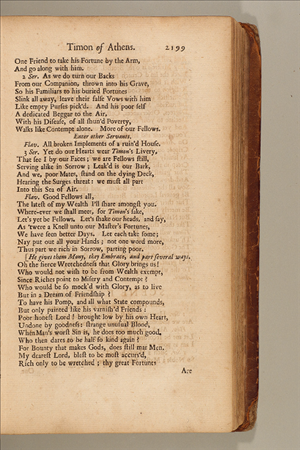 Timon of Athens. 2199
One Friend to take his Fortune by the Arm,
And go along with him.
2 Ser. As we do turn our Backs
From our Companion, thrown into his Grave,
So his Familiars to his buried Fortunes
Slink all away, leave their false Vows with him
Like empty Purses pick'd: And his poor self
A dedicated Beggar to the Air,
With his Disease, of all shun'd Poverty,
Walks like Contempt alone. More of our Fellows.
Enter other Servants.
Flav. All broken Implements of a ruin'd House.
3 Ser. Yet do our Hearts wear Timon's Livery,
That see I by our Faces; we are Fellows still,
Serving alike in Sorrow; Leak'd is our Bark,
And we, poor Mates, stand on the dying Deck,
Hearing the Surges threat: we must all part
Into this Sea of Air.
Flav. Good Fellows all,
The latest of my Wealth I'll share amongst you.
Where-ever we shall meet, for Timon's sake,
Let's yet be Fellows. Let's shake our heads, and say,
As 'twere a Knell unto our Master's Fortunes,
We have seen better Days. Let each take some;
Nay put out all your Hands; not one word more,
Thus part we rich in Sorrow, parting poor.
[He gives them Mony, they Embrace, and part several ways.
Oh the fierce Wretchedness that Glory brings us!
Who would not wish to be from Wealth exempt,
Since Riches point to Misery and Contempt?
Who would be so mock'd with Glory, as to live
But in a Dream of Friendship?
To have his Pomp, and all what State compounds,
But only painted like his varnish'd Friends:
Poor honest Lord! brought low by his own Heart,
Undone by goodness: strange unusual Blood,
When Man's worst Sin is, he does too much good,
Who then dares to be half so kind again?
For Bounty that makes Gods, does still mar Men.
My dearest Lord, blest to be most accurs'd,
Rich only to be wretched; thy great Fortunes
Are